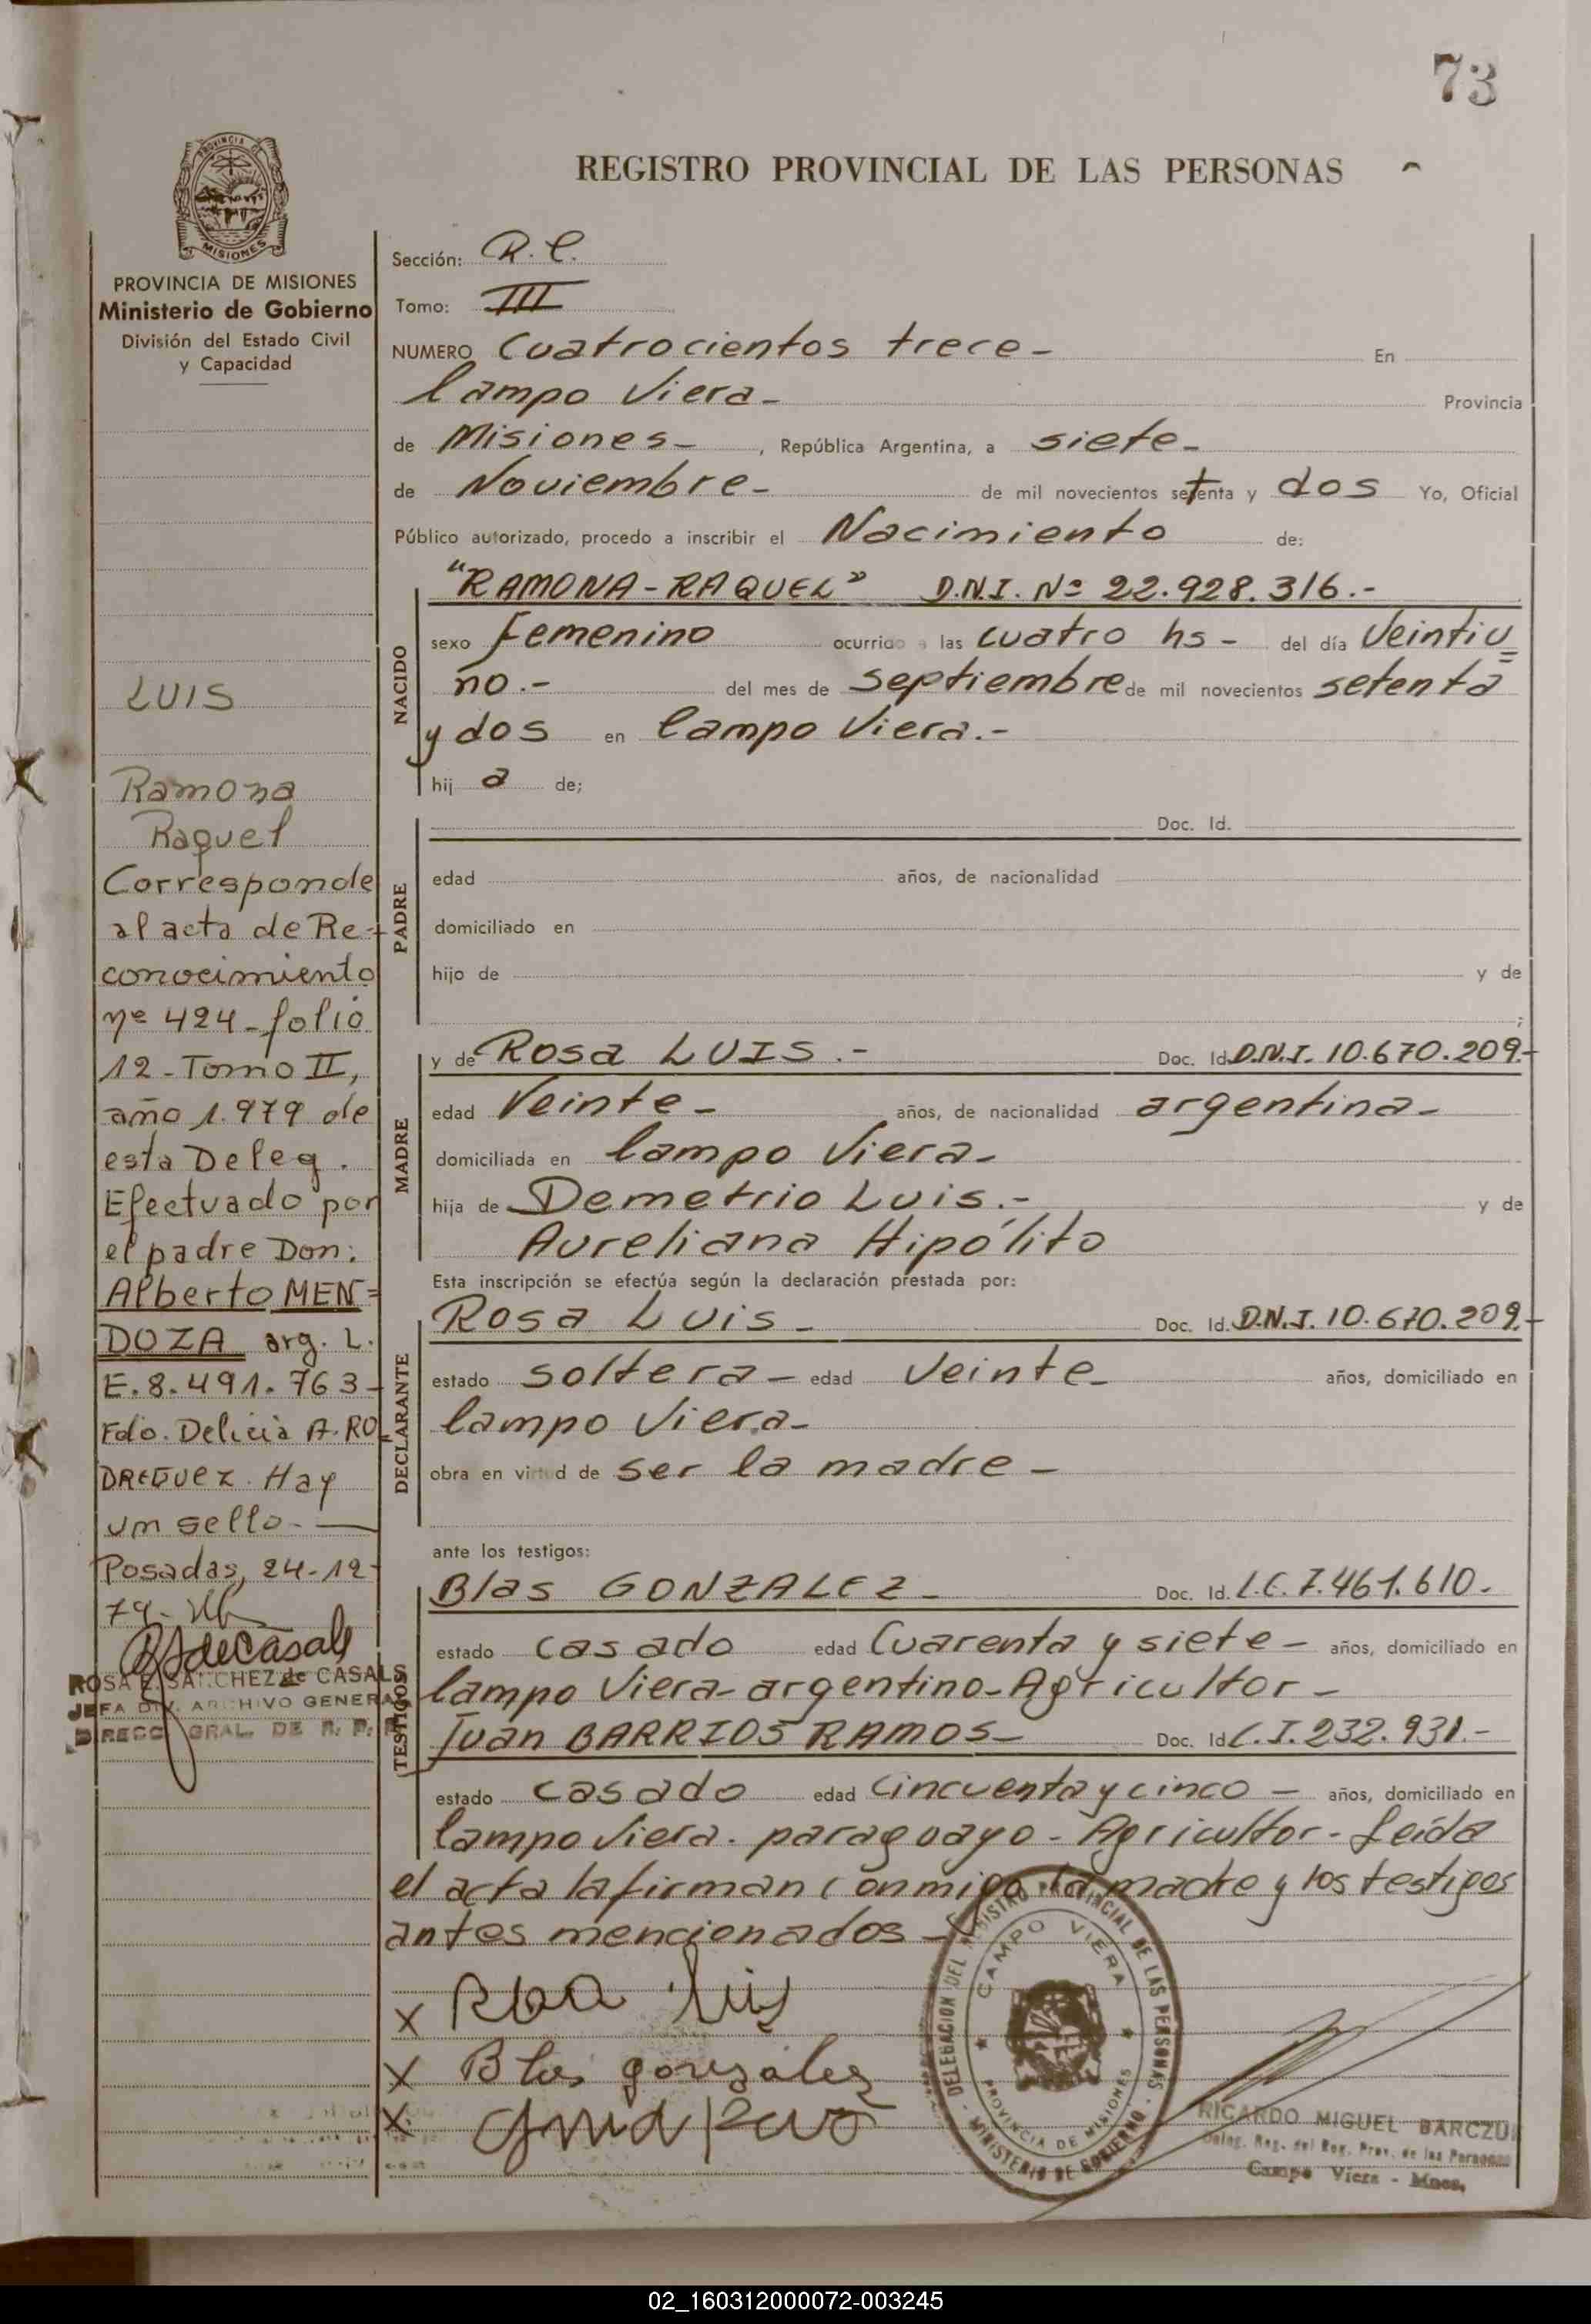 73
REGISTRO PROVINCIAL DE LAS PERSONAS
PROVINCIA DE MISIONES
PROVINCIA DE MISIONES
Ministerio de Gobierno
División del Estado Civil
y Capacidad
LUIS
Ramona
Raquel
Corresponde
al acta de Re-
conocimiento
nº 424 - folio
12 - Tomo II,
año 1.979 de
esta Deleg.
Efectuado por
el padre Don:
Alberto MEN=
DOZA arg. L.
E. 8.491.763-
Fdo. Delicia A. RO_
DREGUEZ. Hay
um sello. —
Posadas, 24-12-
79-
ROSA E. SANCHEZ de CASALS
JEFA DIV. ARCHIVO GENERAL
DIRECC. GRAL. DE R. P. P.
Sección: R. C.
Tomo: III
NUMERO Cuatrocientos trece - En
Campo Viera - Provincia
de Misiones -, República Argentina, a siete -
de Noviembre - de mil novecientos setenta y dos Yo, Oficial
Público autorizado, procedo a inscribir el Nacimiento de:
NACIDO
"RAMONA-RAQUEL" D.N.I. Nº 22.928.316.-
sexo Femenino ocurrido a las cuatro hs - del día Veintiu=
no.- del mes de septiembre de mil novecientos setenta
y dos en Campo Viera.-
hij a de;
PADRE
Doc. Id.
edad años, de nacionalidad
domiciliado en
hijo de y de
;
MADRE
y de Rosa LUIS.- Doc. Id. D.N.I. 10.670.209.-
edad Veinte - años, de nacionalidad argentina -
domiciliada en Campo Viera -
hija de Demetrio Luis.- y de
Aureliana Hipólito
Esta inscripción se efectúa según la declaración prestada por:
DECLARANTE
Rosa Luis - Doc. Id. D.N.I. 10.670.209.-
estado soltera - edad Veinte - años, domiciliado en
Campo Viera -
obra en virtud de ser la madre -
ante los testigos:
TESTIGOS
Blas GONZALEZ - Doc. Id. L.E. 7.461.610.
estado casado edad Cuarenta y siete - años, domiciliado en
Campo Viera - argentino - Agricultor -
Juan BARRIOS RAMOS - Doc. Id. C.I. 232.931.-
estado casado edad Cincuenta y cinco - años, domiciliado en
Campo Viera. paraguayo - Agricultor - Leída
el acta la firman conmigo la madre y los testigos
antes mencionados -
x Rosa Luis
x Blas gonzález
x
DELEGACION DEL REGISTRO PROVINCIAL DE LAS PERSONAS - MINISTERIO DE GOBIERNO -
CAMPO VIERA
PROVINCIA DE MISIONES
RICARDO MIGUEL BARCZUK
Deleg. Reg. del Reg. Prov. de las Personas
Campo Viera - Mnes.
02_160312000072-003245